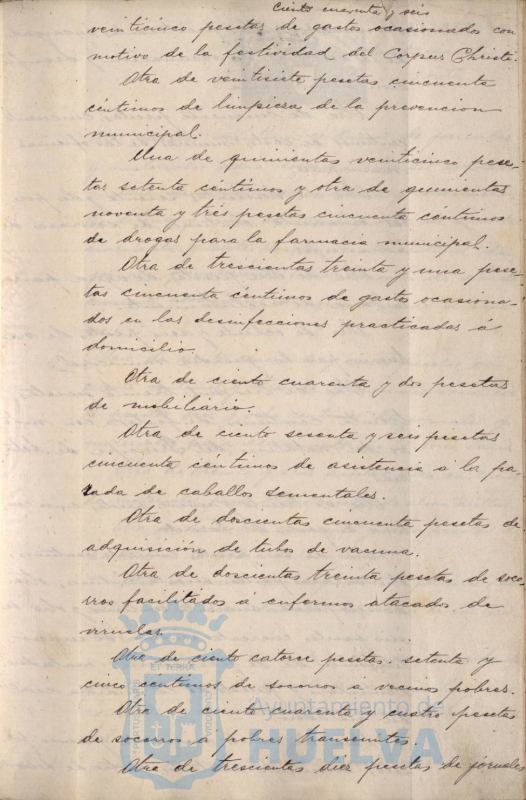 ciento cuarenta y seis
veinticinco pesetas de gastos ocasionados con
motivo de la festividad del Corpus Christi.
Otra de veintisiete pesetas cincuenta
céntimos de limpieza de la prevencion
municipal.
Una de quinientas veinticinco pese-
tas setenta céntimos y otra de quinientas
noventa y tres pesetas cincuenta céntimos
de drogas para la farmacia municipal.
Otra de trescientas treinta y una pese-
tas cincuenta céntimos de gastos ocasiona-
dos en las desinfecciones practicadas á
domicilio.
Otra de ciento cuarenta y dos pesetas
de mobiliario.
Otra de ciento sesenta y seis pesetas
cincuenta céntimos de asistencia á la pa-
rada de caballos sementales.
Otra de doscientas cincuenta pesetas de
adquisición de tubos de vacuna.
Otra de doscientas treinta pesetas de soco-
rros facilitados á enfermos atacados de
viruelas.
Otra de ciento catorce pesetas setenta y
cinco céntimos de socorros a vecinos pobres.
Otra de ciento cuarenta y cuatro pesetas
de socorros a pobres transeuntes.
Otra de trescientas diez pesetas de jornales
ET TERRÆ
Ayuntamiento de
HUELVA